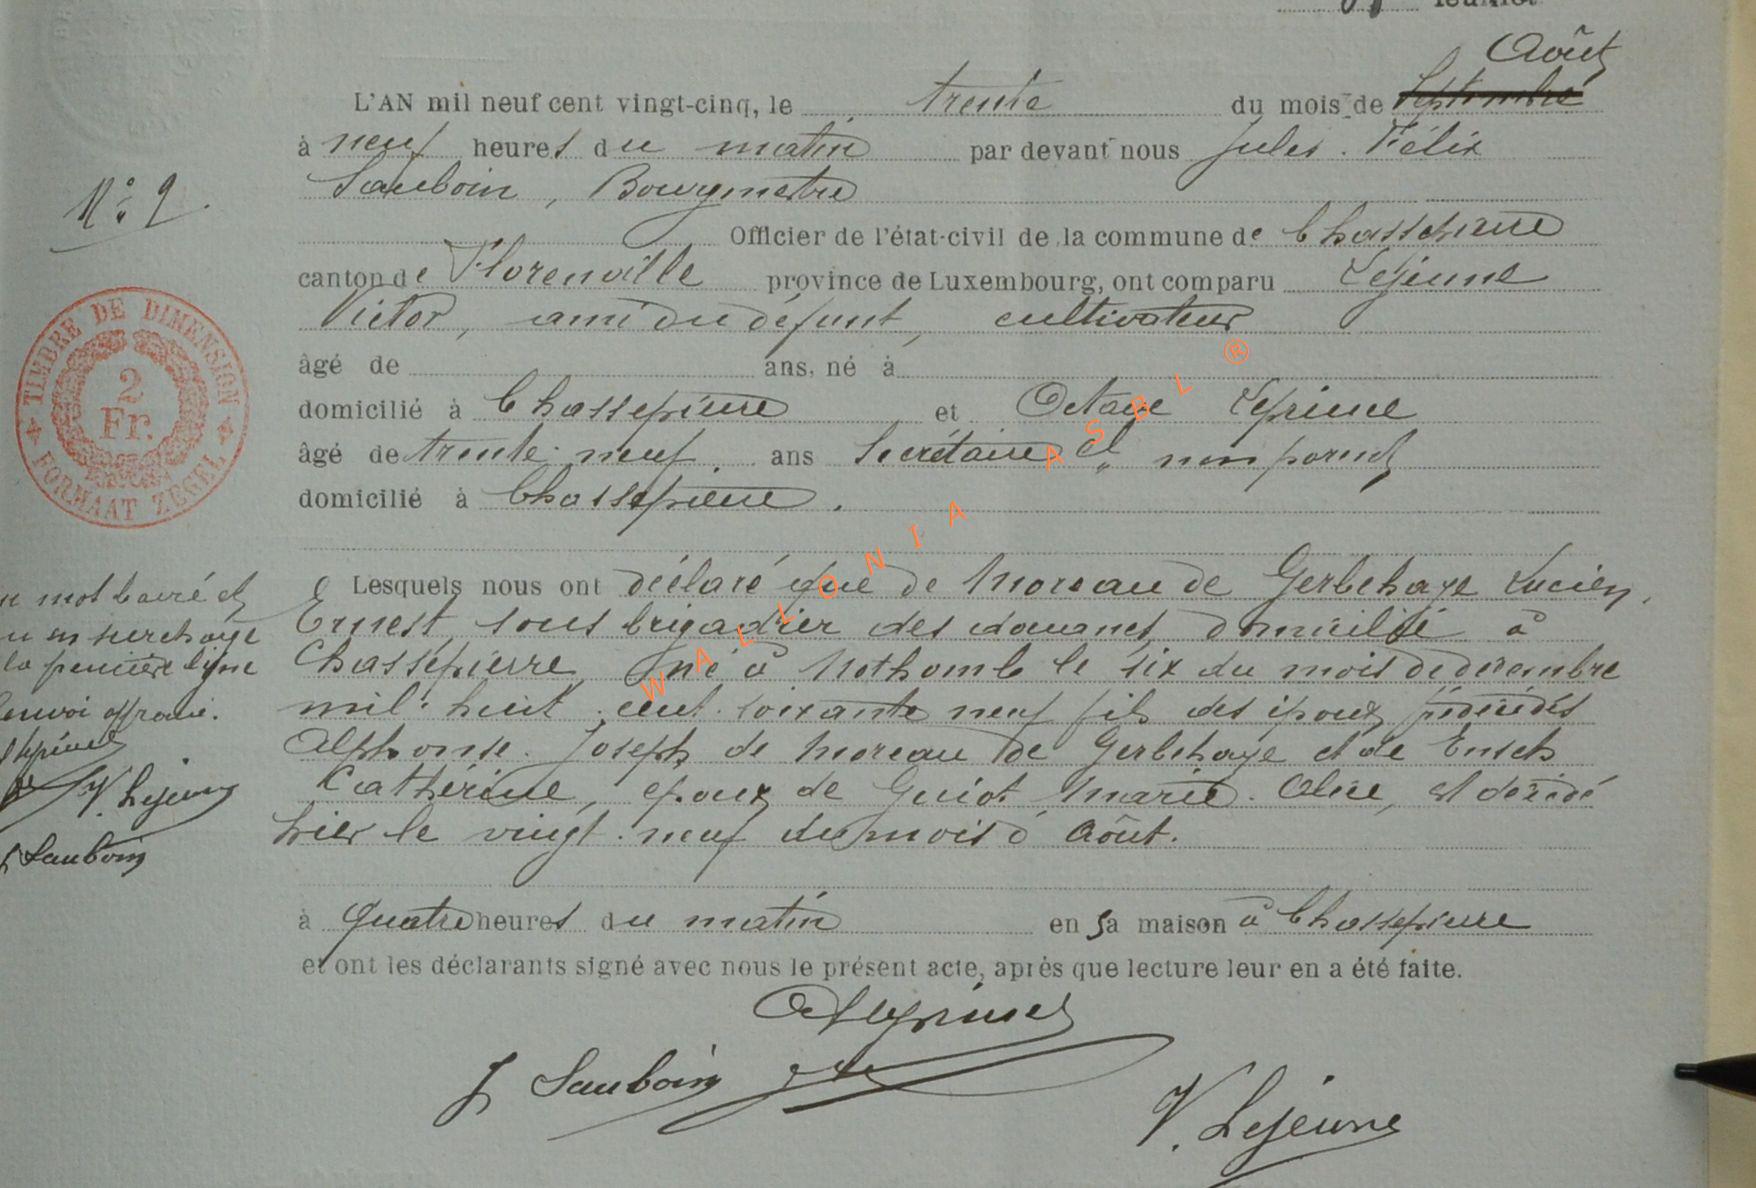 feuillet
Août
L'AN mil neuf cent vingt-cinq, le trente du mois de Septembre
à neuf heures du matin par devant nous Jules. Félix
Sauboin, Bourgmestre
N° 9.
Officier de l'état-civil de la commune de Chassepierre
canton de Florenville province de Luxembourg, ont comparu Lejeune
Victor, ami du défunt, cultivateur
âgé de ans, né à
domicilié à Chassepierre et Octave Lepiné
âgé de trente-neuf. ans Secrétaire et non parent
domicilié à Chassepierre.
TIMBRE DE DIMENSION
2
Fr.
FORMAAT ZEGEL
Lesquels nous ont déclaré que de Moreau de Gerbehaye Lucien,
Ernest, sous brigadier des douanes, domicilié à
Chassepierre, né à Nothomb le six du mois de décembre
mil huit cent soixante neuf fils des époux décédés
Alphonse. Joseph de Moreau de Gerbehaye et de Ensch
Catherine, époux de Guiot Marie. Alice, est décédé
hier le vingt-neuf du mois d'Août.
mot barré et
en surcharge
la première ligne
envoi approuvé.
V. Lejeune
J Sauboin
à quatre heures du matin en sa maison à Chassepierre
et ont les déclarants signé avec nous le présent acte, après que lecture leur en a été faite.
J Sauboin
V. Lejeune
WALLONIA ASBL ®